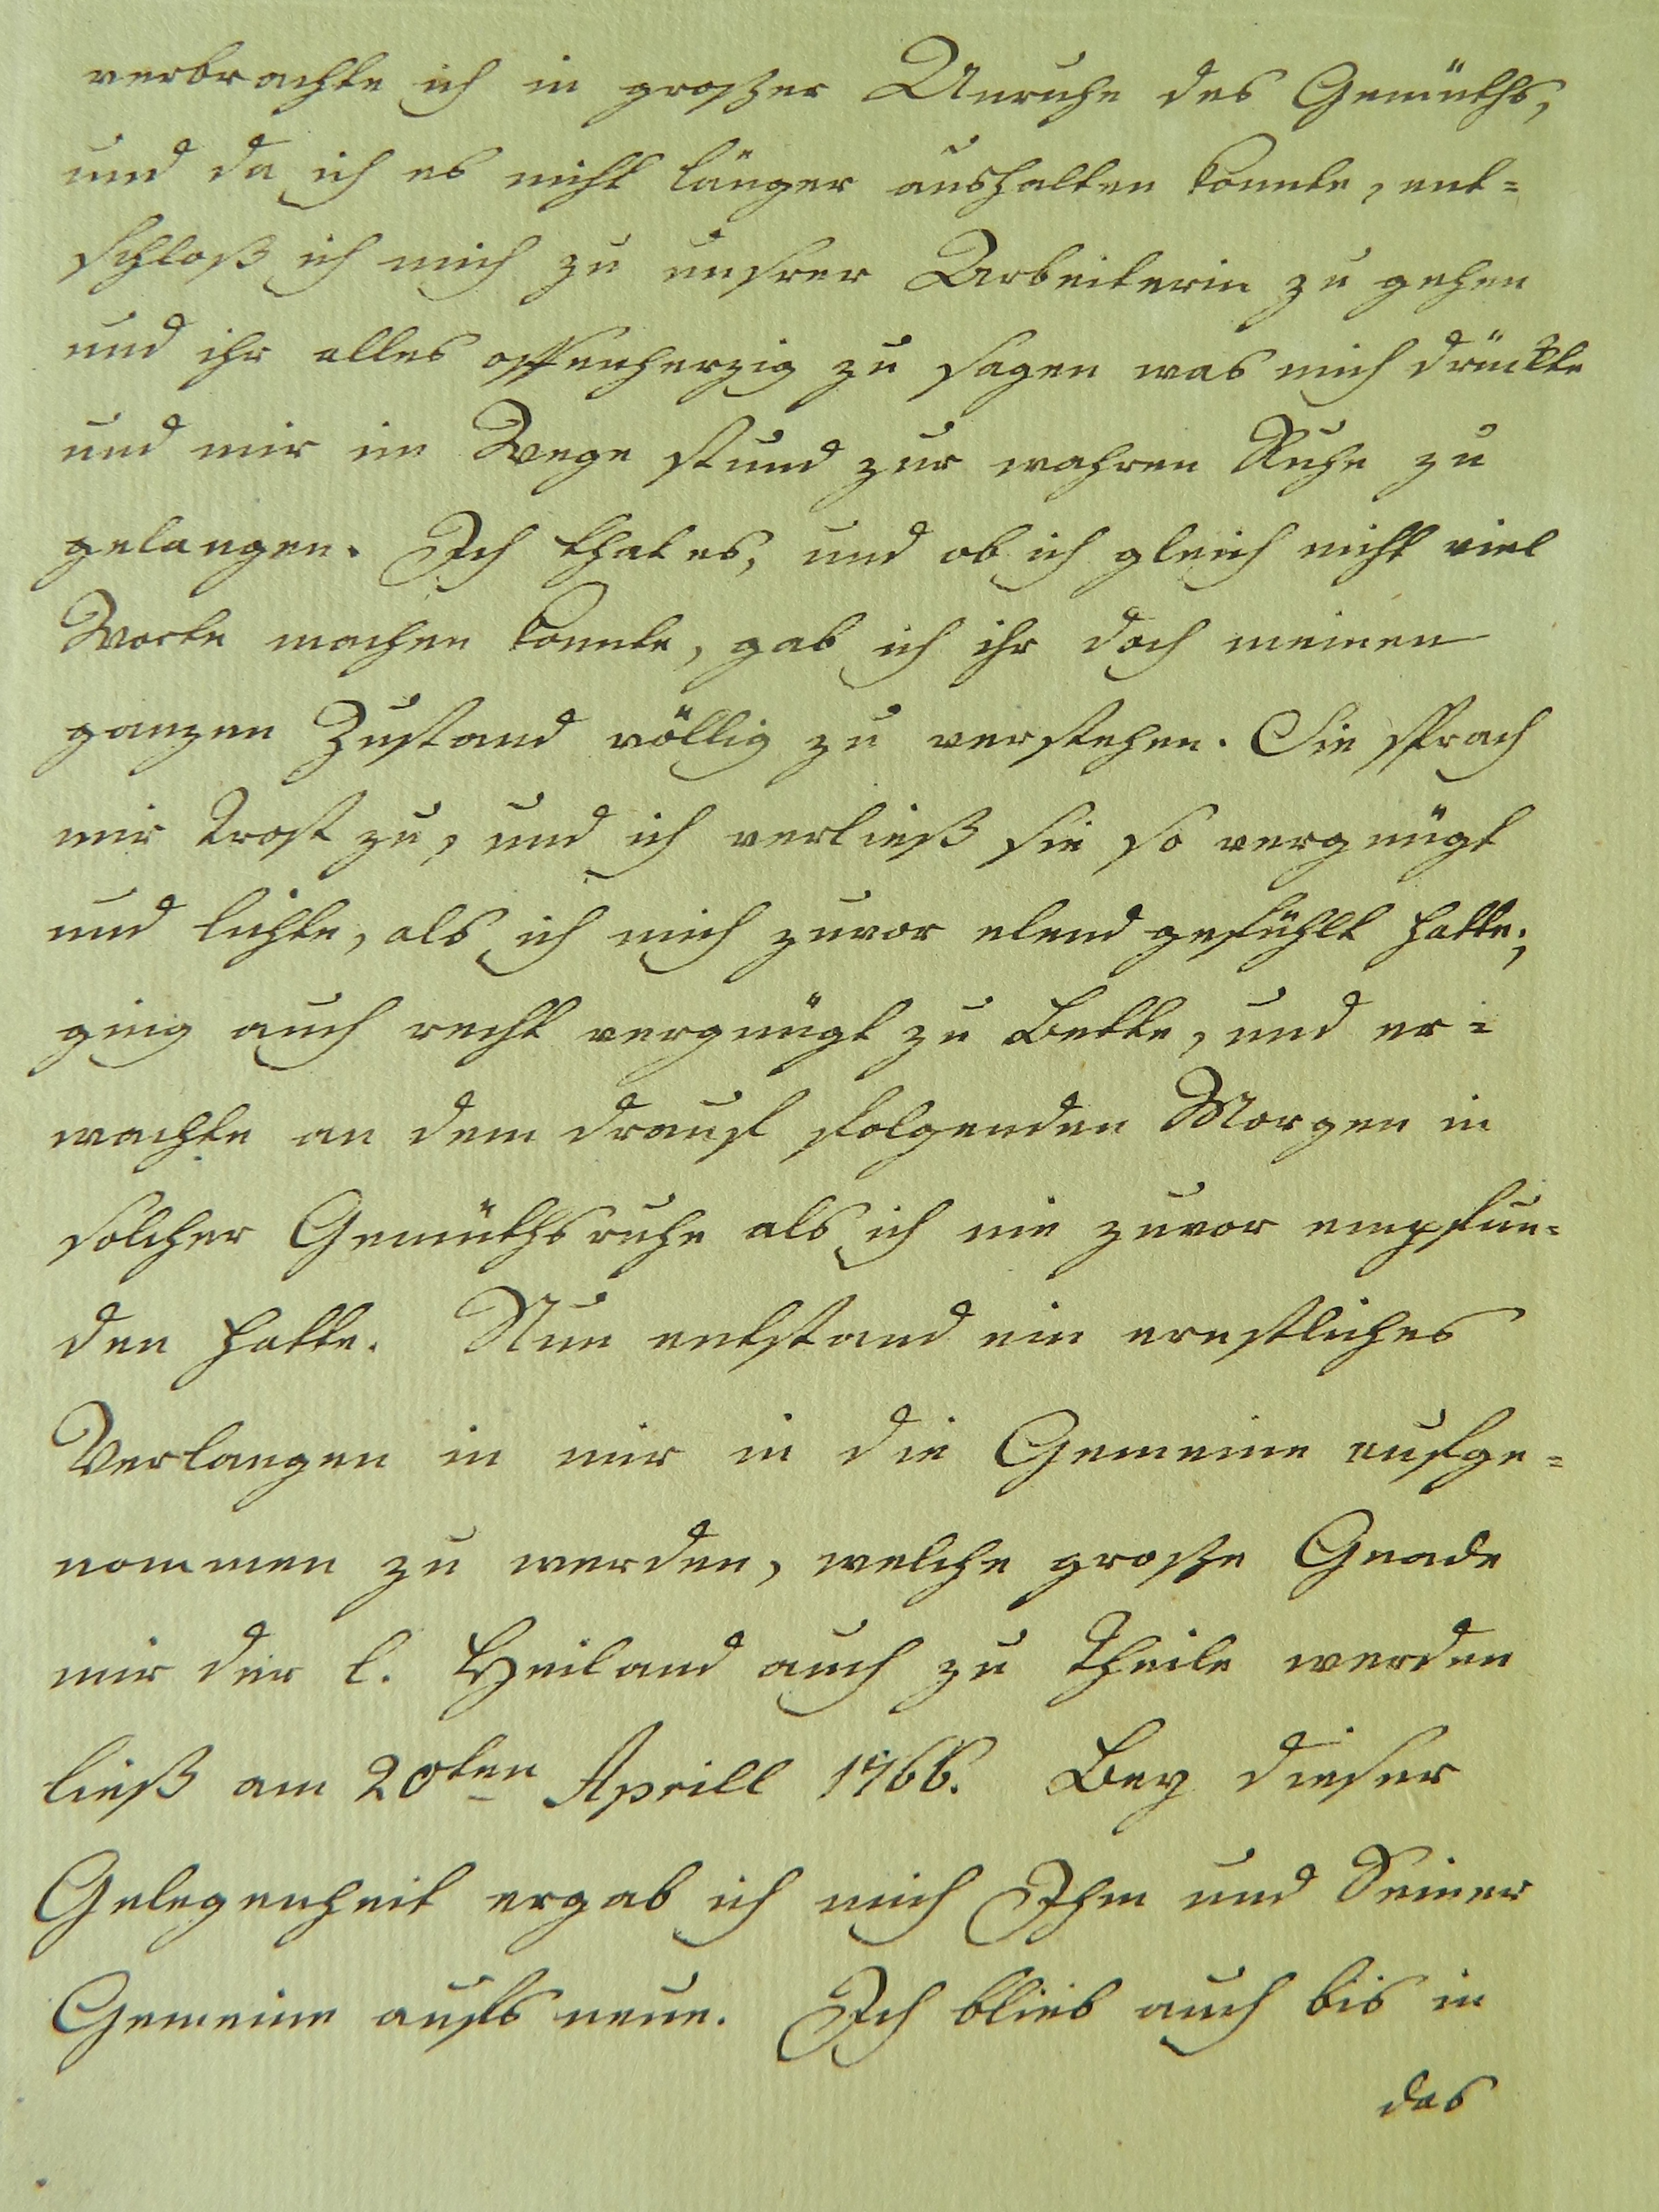 verbrachte ich in großer Unruhe des Gemüths,
und da ich es nicht länger aushalten konnte, ent=
schloß ich mich zu unsrer Arbeiterin zu gehen
und ihr alles offenherzig zu sagen was mich drückte
und mir im Wege stund zur wahren Ruhe zu
gelangen. Ich that es, und ob ich gleich nicht viel
Worte machen konnte, gab ich ihr doch meinen
ganzen Zustand völlig zu verstehen. Sie sprach
mir Trost zu, und ich verließ sie so vergnügt
und lichte, als ich mich zuvor elend gefühlt hatte;
ging auch recht vergnügt zu Bette, und er=
wachte an dem drauf folgenden Morgen in
solcher Gemüthsruhe als ich nie zuvor empfun=
den hatte. Nun entstand ein ernstliches
Verlangen in mir in die Gemeine aufge=
nommen zu werden, welche große Gnade
mir der l. Heiland auch zu Theile werden
ließ am 20ten Aprill 1766. Bey dieser
Gelegenheit ergab ich mich Ihm und Seiner
Gemeine aufs neue. Ich blieb auch bis in
das